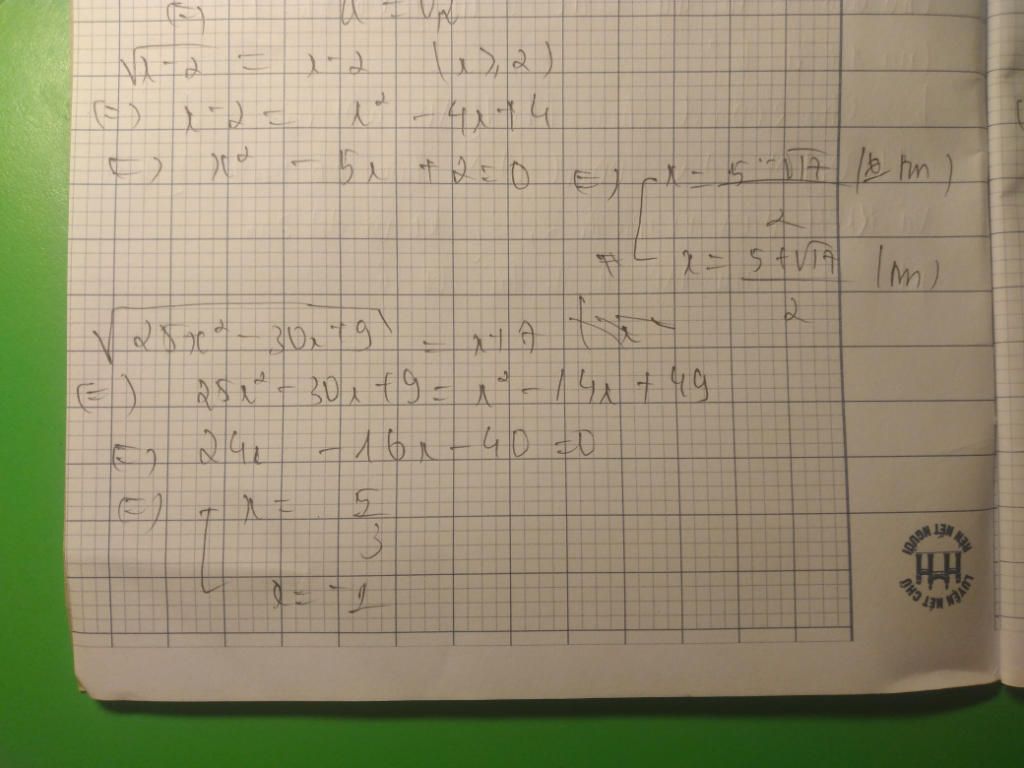 √(x-2) = x-2 (x ≥ 2)
(=) x-2 = x² - 4x + 4
(=) x² - 5x + 2 = 0 (=) [ x = (5 - √17)/2 (tm)
x = (5 + √17)/2 (tm)
√(25x² - 30x + 9) = x + 7
(=) 25x² - 30x + 9 = x² - 14x + 49
(=) 24x - 16x - 40 = 0
(=) [ x = 5/3
x = -1
LUYỆN NÉT CHỮ
RÈN NẾT NGƯỜI